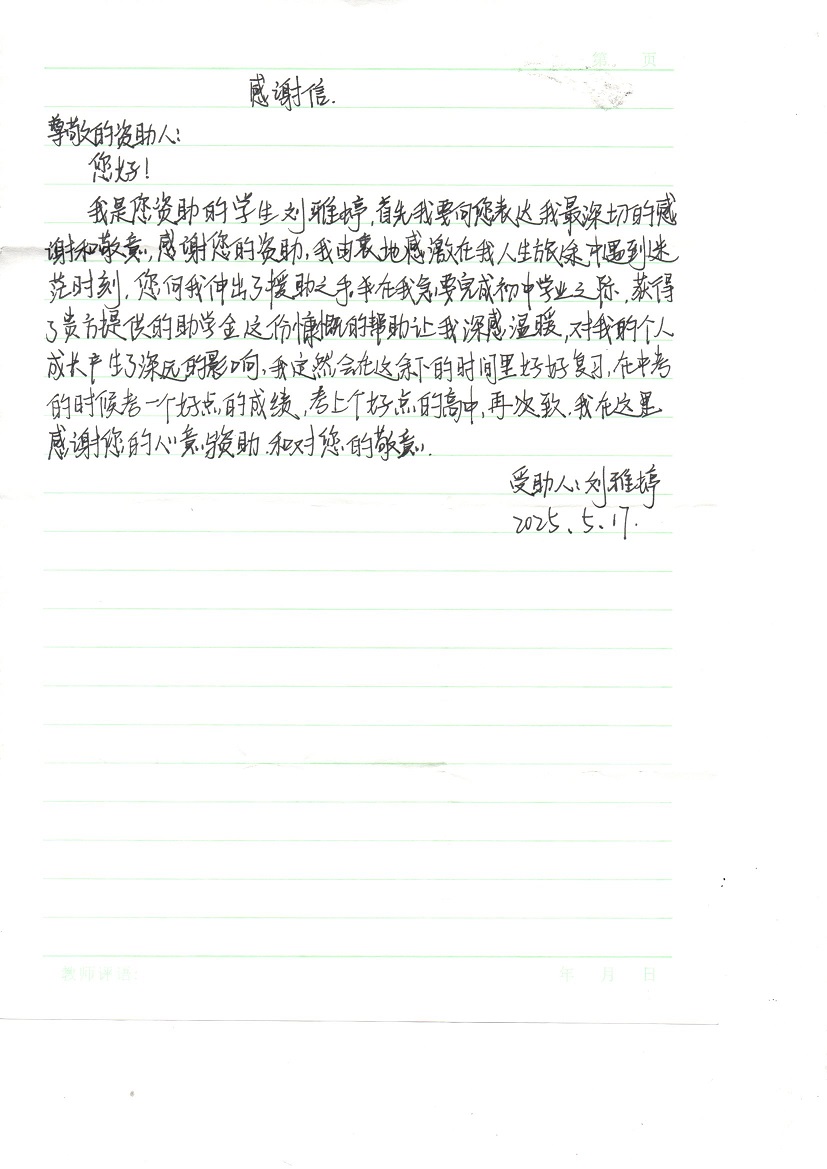 第 页
感谢信.
尊敬的资助人:
您好!
我是您资助的学生刘雅婷,首先我要向您表达我最深切的感
谢和敬意,感谢您的资助,我由衷地感激在我人生旅途中遇到迷
茫时刻,您向我伸出了援助之手,我在我急要完成初中学业之际,获得
了贵方提供的助学金,这份慷慨的帮助让我深感温暖,对我的个人
成长产生了深远的影响,我定然会在这余下的时间里好好复习,在中考
的时候考一个好点的成绩,考上个好点的高中,再次致,我在这里
感谢您的心意与资助.和对您的敬意.
受助人:刘雅婷
2025.5.17.
教师评语: 年 月 日